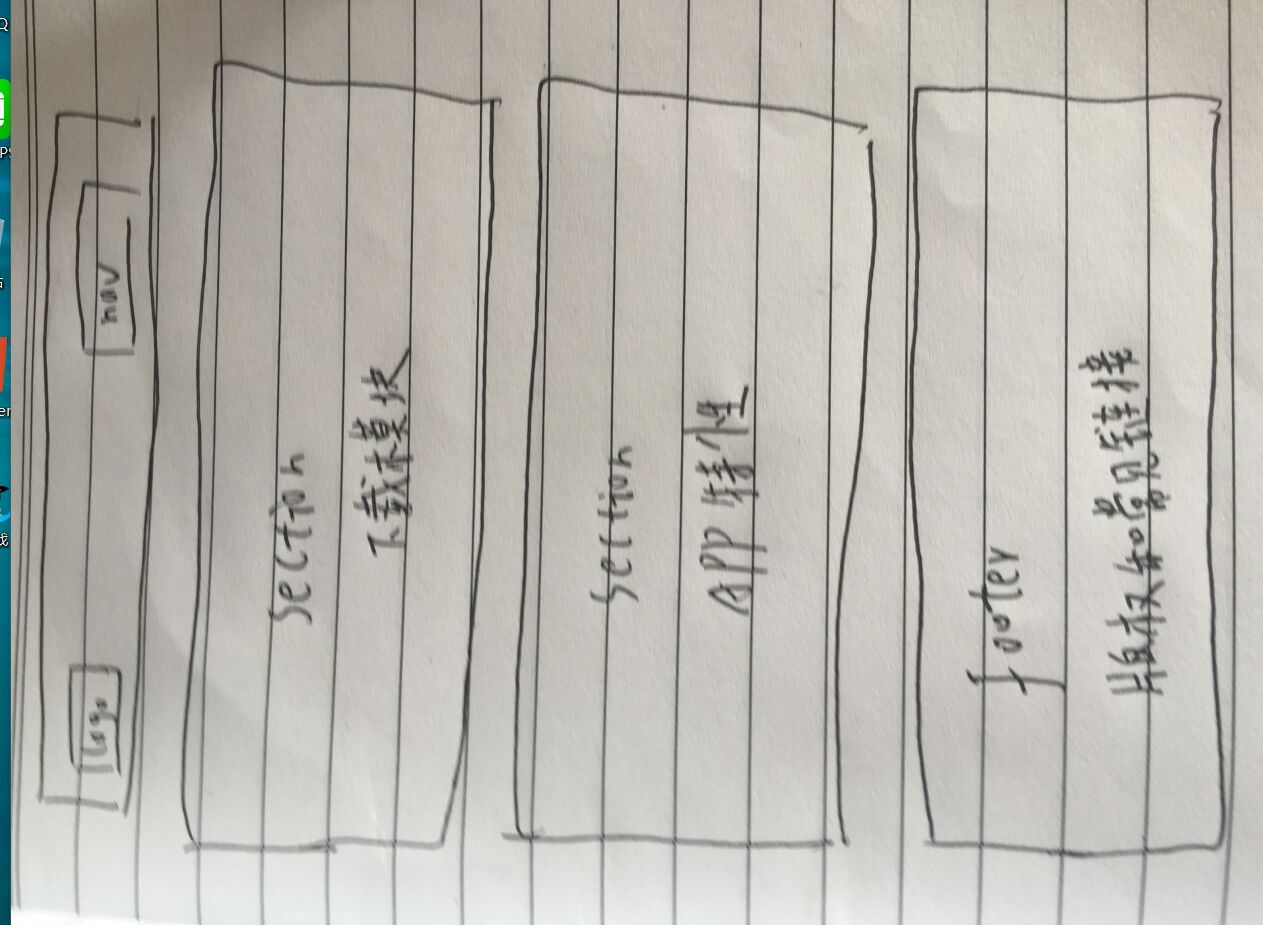 logo nav
section
下载模块
section
APP 特性
footer
版权和常见链接